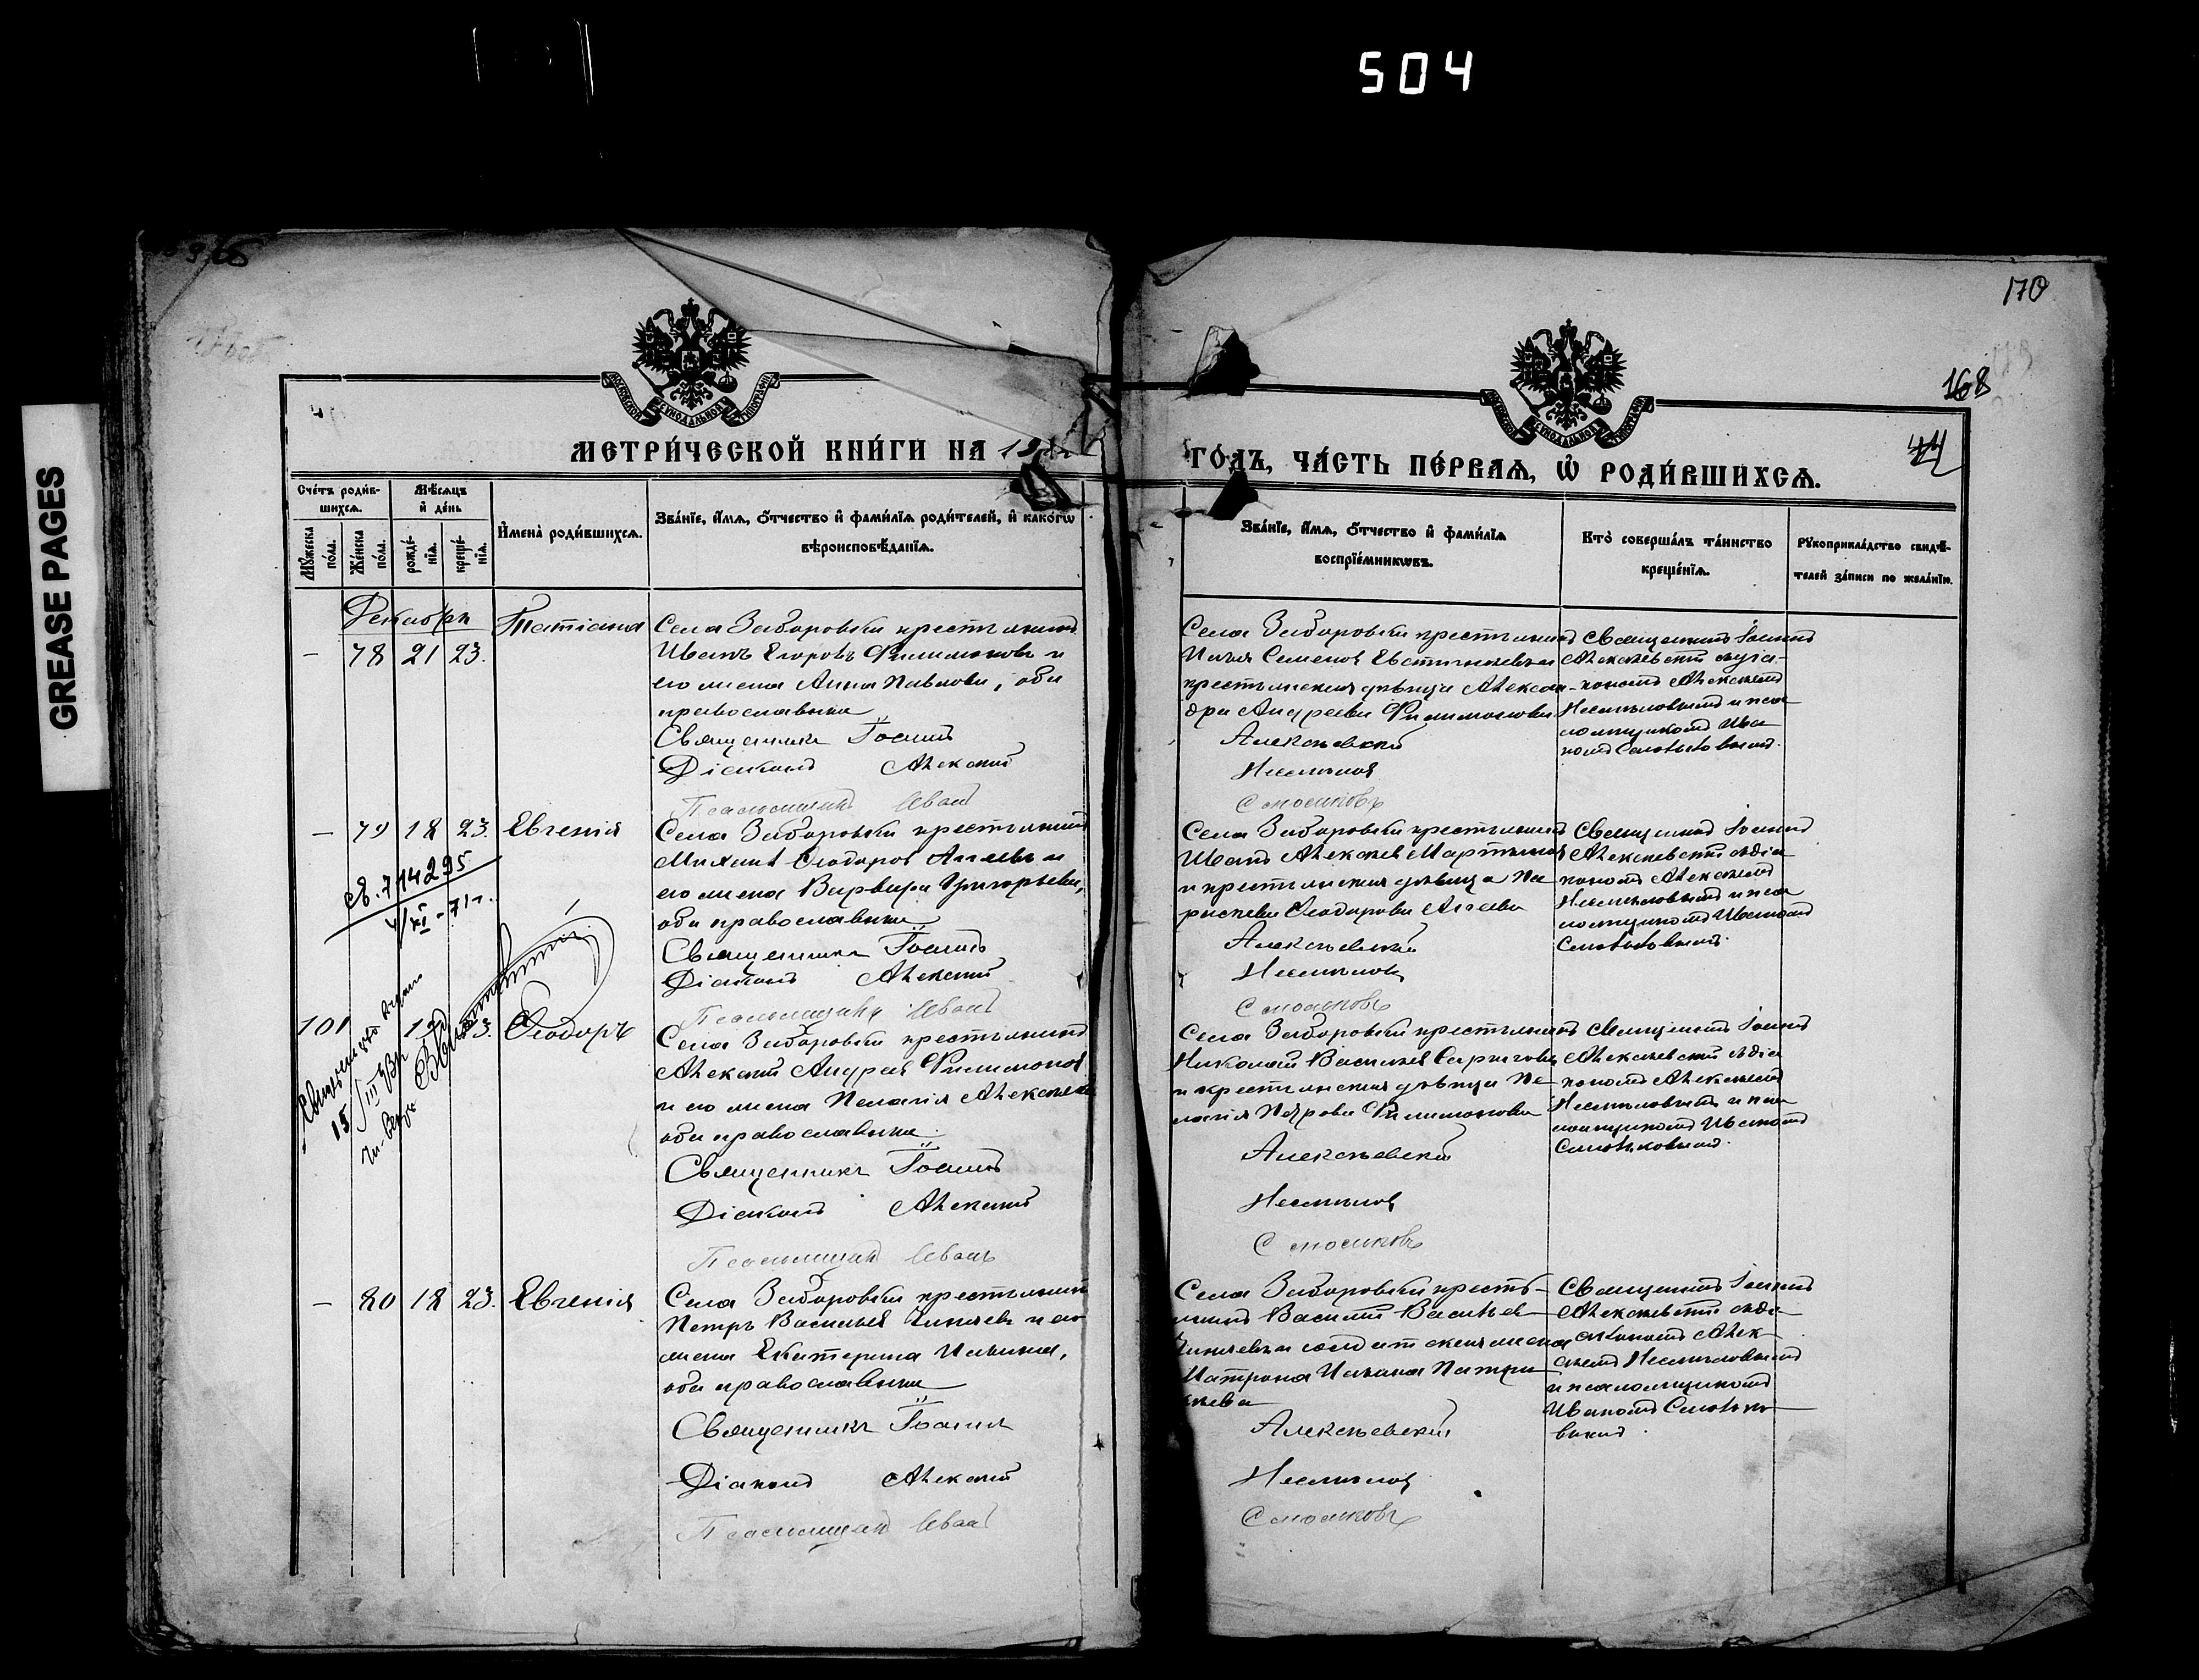 504
GREASE PAGES
170
168
МЕТРИ́ЧЕСКОЙ КНИ́ГИ НА 19
ГО́ДЪ, ЧА́СТЬ ПЕ́РВАѦ, Ѡ҆ РОДИ́ВШИХСѦ.
Сче́тъ роди́в-
шихсѧ.
Мѣ́сѧцъ
и҆ де́нь
Мꙋ́жеска
по́ла.
Же́нска
по́ла.
рожде́-
нїѧ.
креще́-
нїѧ.
И҆мена̀ роди́вшихсѧ.
Зва́нїе, и҆́мѧ, ѻ҆́тчество и҆ фами́лїѧ роди́телей, и҆ како́гѡ
вѣроисповѣ́данїѧ.
Зва́нїе, и҆́мѧ, ѻ҆́тчество и҆ фами́лїѧ
воспрїе́мникѡвъ.
Кто̀ соверша́лъ та́инство
креще́нїѧ.
Рꙋкоприкла́дство свидѣ́-
телей за́писи по жела́нїю.
Декабрь
— 78 21 23. Татіана
Села Заборовки крестьянинъ
Иванъ Егоровъ Филимоновъ и
его жена Анна Павлова, оба
православные
Священникъ Іоаннъ
Діаконъ Алексій
Псаломщикъ Иванъ
Села Заборовки крестьянинъ
Илья Семеновъ Евстигнѣевъ и
крестьянская дѣвица Алексан-
дра Андреева Филимонова
Алексѣевскій
Несмѣловъ
Смосиковъ
Священникъ Іоаннъ
Алексѣевскій съ діа-
кономъ Алексѣемъ
Несмѣловымъ и пса
ломщикомъ Ива
номъ
— 79 18 23. Евгенія
Села Заборовки крестьянинъ
Михаилъ Ѳеодоровъ Агеевъ и
его жена Варвара Григорьева,
оба православные
Священникъ Іоаннъ
Діаконъ Алексій
Псаломщикъ Иванъ
Села Заборовки крестьянинъ
Иванъ Алексѣевъ Мартыновъ
и крестьянская дѣвица Па
раскева Ѳеодорова Агеева
Алексѣевскій
Несмѣловъ
Смосиковъ
Священникъ Іоаннъ
Алексѣевскій съ діа
кономъ Алексѣемъ
Несмѣловымъ и пса
ломщикомъ Иваномъ
714295
4/XI-71г.
101 23. Ѳеодоръ
Села Заборовки крестьянинъ
Алексій Андреевъ Филимоновъ
и его жена Пелагія Алексѣева
оба православные.
Священникъ Іоаннъ
Діаконъ Алексій
Псаломщикъ Иванъ
Села Заборовки крестьянинъ
Николай Васильевъ
и крестьянская дѣвица Пе
лагія Петрова Филимонова
Алексѣевскій
Несмѣловъ
Смосиковъ
Священникъ Іоаннъ
Алексѣевскій съ діа
кономъ Алексѣемъ
Несмѣловымъ и пса
ломщикомъ Иваномъ
— 80 18 23. Евгенія
Села Заборовки крестьянинъ
Петръ Васильевъ и его
жена Екатерина Ильина,
оба православные
Священникъ Іоаннъ
Діаконъ Алексій
Псаломщикъ Иванъ
Села Заборовки кресть-
янинъ Василій Васильевъ
и солдатская жена
Матрона Ильина
Алексѣевскій
Несмѣловъ
Смосиковъ
Священникъ Іоаннъ
Алексѣевскій съ діа
кономъ Алек-
сѣемъ Несмѣловымъ
и псаломщикомъ
Иваномъ